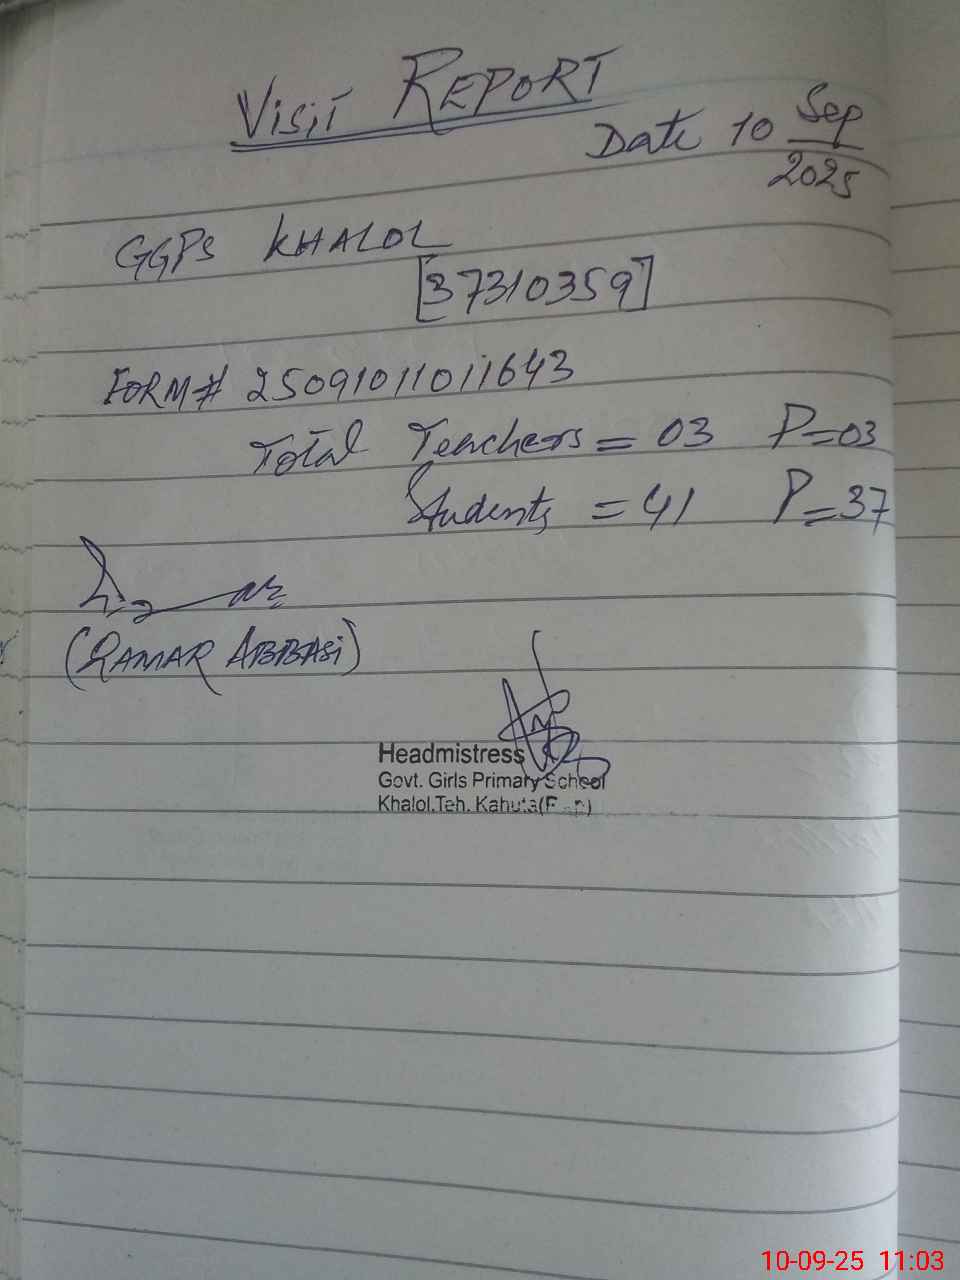 VISIT REPORT
Date 10 Sep
2025
GGPS KHALOL
[37310359]
FORM# 25091011011643
Total Teachers = 03 P=03
Students = 41 P=37
(QAMAR ABBASI)
Headmistress
Govt. Girls Primary School
Khalol.Teh. Kahuta
10-09-25 11:03